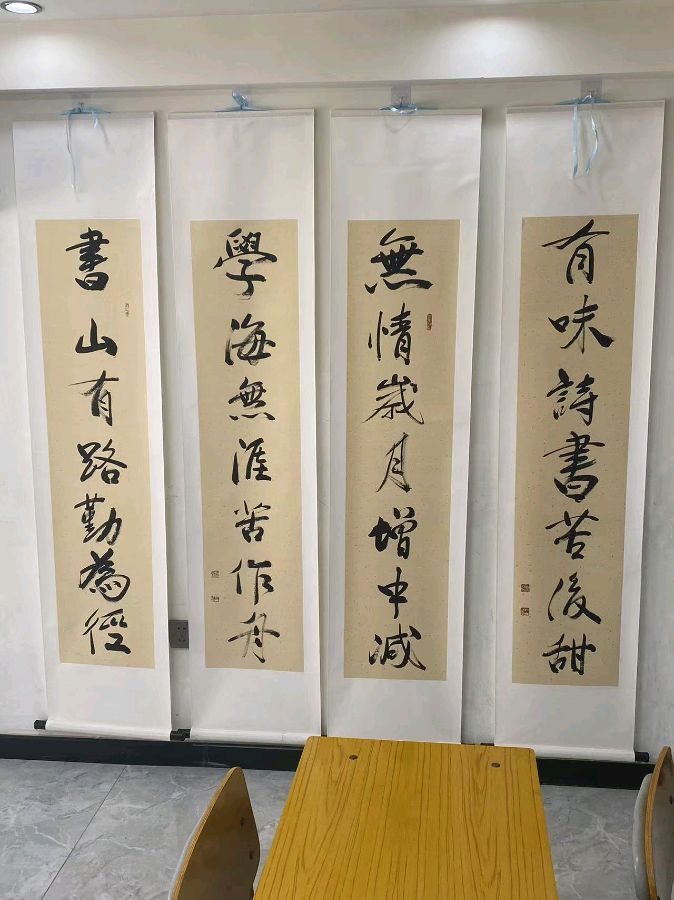 書山有路勤為徑
學海無涯苦作舟
無情歲月增中減
有味詩書苦後甜